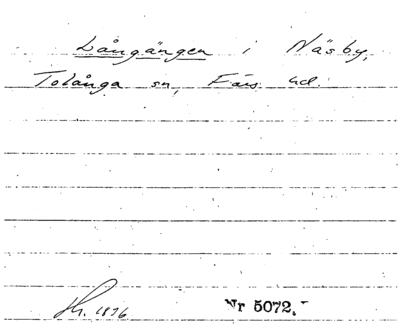 Långängen i Näsby,
Tolånga sn, Färs hd.
1896 Nr 5072.